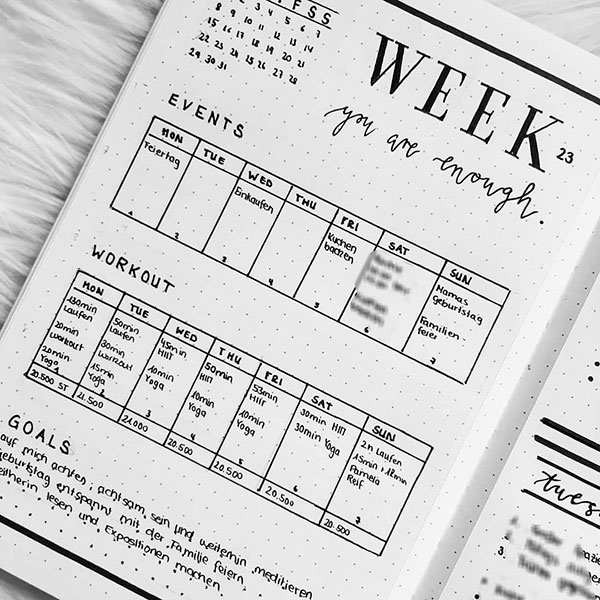 F S S
1 2 3 4 5 6 7
8 9 10 11 12 13 14
15 16 17 18 19 20 21
22 23 24 25 26 27 28
29 30 31
WEEK 23
you are enough.
EVENTS
MON TUE WED THU FRI SAT SUN
Feiertag
1
2
Einkaufen
3
4
Kuchen
backen
5
6
Mamas
Geburtstag
Familien
feier
7
WORKOUT
MON TUE WED THU FRI SAT SUN
Laufen
20min
Workout
20min
Yoga
1
20.500 ST
50min
Laufen
30min
Workout
15min
Yoga
2
21.500
45min
HIIT
10min
Yoga
3
21.000
50min
HIIT
10min
Yoga
4
20.500
53min
HIIT
10min
Yoga
5
20.500
30min HIIT
30min Yoga
6
20.500
2h Laufen
15min + 18min
Pamela
Reif
7
20.500
GOALS
auf mich achten, achtsam sein und weiterhin meditieren
Geburtstag entspannt mit der Familie feiern
weiterhin lesen und Expositionen machen
tues
3.